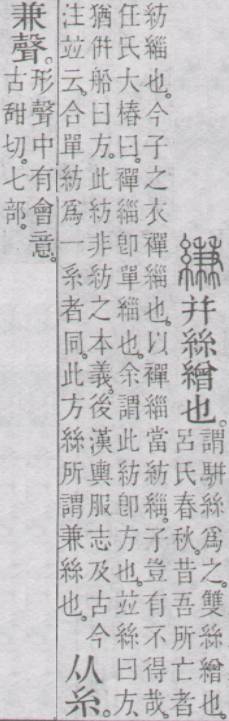 縑 并絲繒也。
謂駢絲爲之。雙絲繒也。
呂氏春秋。昔吾所亡者
紡緇也。今子之衣襌緇也。以襌緇當紡緇。子豈有不得哉。
任氏大椿曰。襌緇卽單緇也。余謂此紡卽方也。竝絲曰方。
猶併船曰方。此紡非紡之本義。後漢輿服志及古今
注竝云。合單紡爲一系者同。此方絲所謂兼絲也。
从糸。
兼聲。
形聲中有會意。
古甜切。七部。